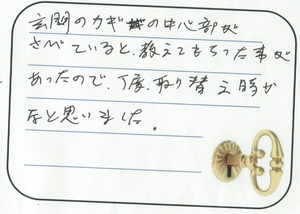 玄関のカギの中心部が
さびていると、教えてもらった事が
あったので、丁度、取り替え時か
なと思いました。